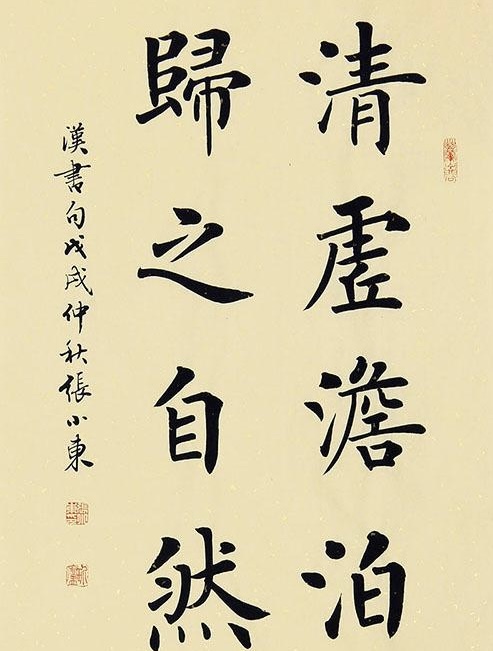 清虛澹泊
歸之自然
漢書句戊戌仲秋張小東